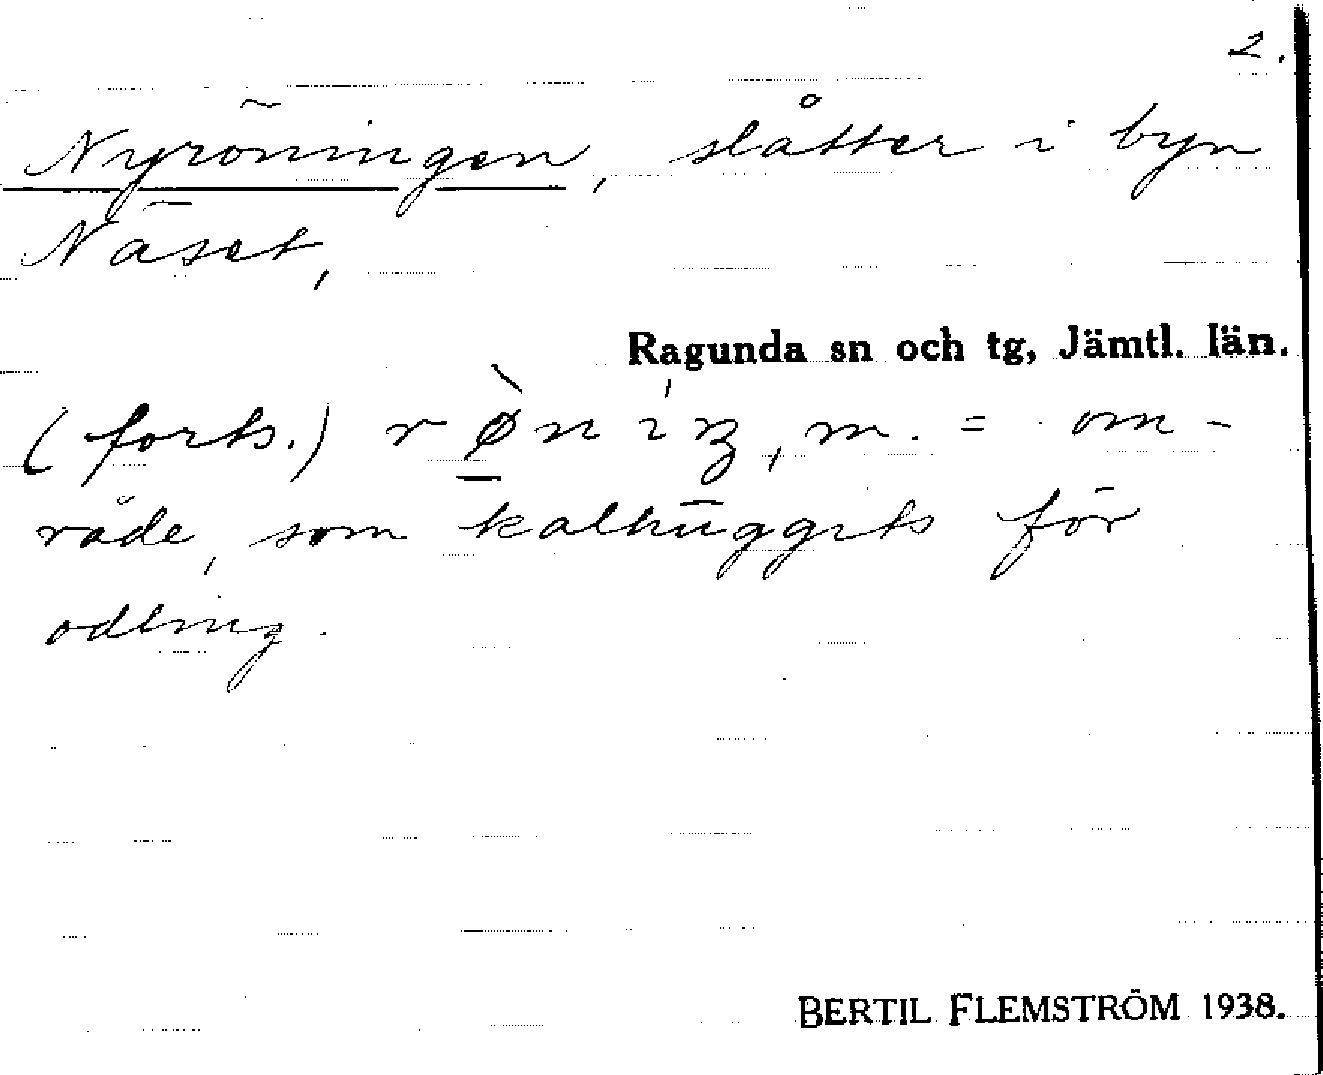 2.
Nyröningen, slåtter i byn
Näset,
Ragunda sn och tg, Jämtl. län.
(forts.) rø̀níŋ, m. = om-
råde, som kalhuggits för
odling.
BERTIL FLEMSTRÖM 1938.